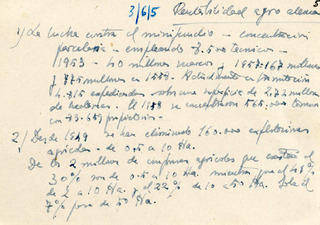 3/6/5 Rentabilidad agro alemana 5
1) La lucha contra el minifundio - concentración
parcelaria - empleando 7.500 técnicos -
1953 - 40 millones marcos y 1957: 167 millones
y 775 millones en 1959. Actualmente en tramitación
4.815 expedientes sobre una superficie de 2,72 millones
de hectáreas. El 1958 se concentraron 565.000
con 93.651 propietarios.
2) Desde 1949 se han eliminado 160.000 explotaciones
agrícolas - de 0.5 a 10 Ha.
De los 2 millones de empresas agrícolas que
30% son de 0.5 a 10 Ha. mientras que el 48%
de 2 a 10 Ha. y el 22% de 10 a 50 Ha. Sólo el
7% pasa de 50 Ha.